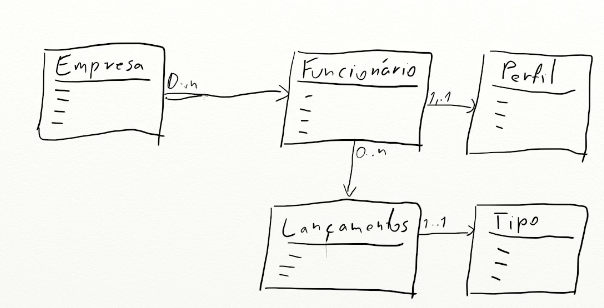 Empresa
0..n
Funcionário
1..1
Perfil
0..n
Lançamentos
1..1
Tipo